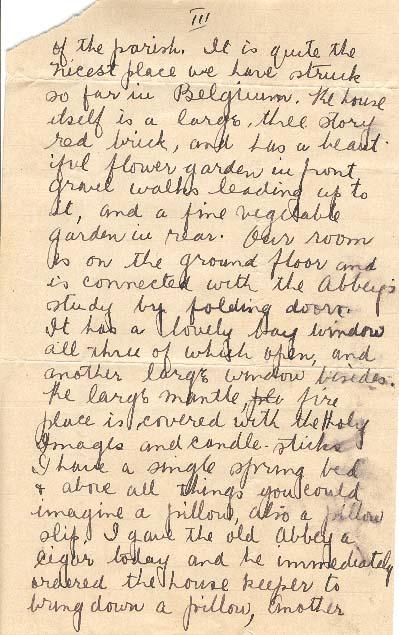 III
of the parish. It is quite the
nicest place we have struck
so far in Belgium. The house
itself is a large, three story
red brick, and has a beaut-
iful flower garden in front,
gravel walks leading up to
it, and a fine vegitable
garden in rear. Our room
is on the ground floor and
is connected with the Abbey's
study by folding doors.
It has a lovely bay window
all three of which open, and
another large window besides.
The large mantle, fire
place is covered with the Holy
Images and candle-sticks
I have a single spring bed
& above all things you could
imagine a pillow, also a pillow
slip. I gave the old Abbey a
cigar today and he immediately
ordered the house keeper to
bring down a pillow, another